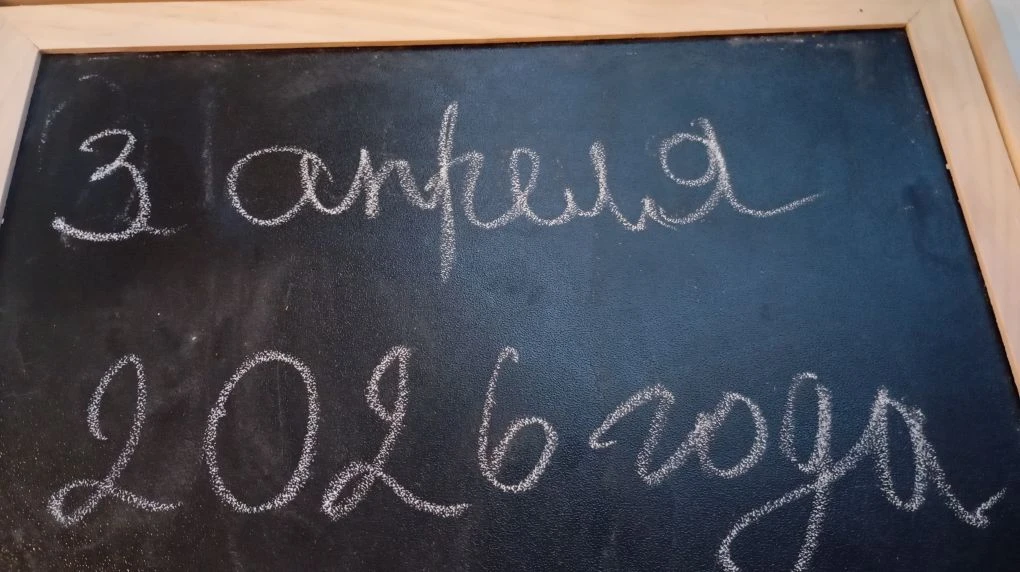 3 апреля
2026 года